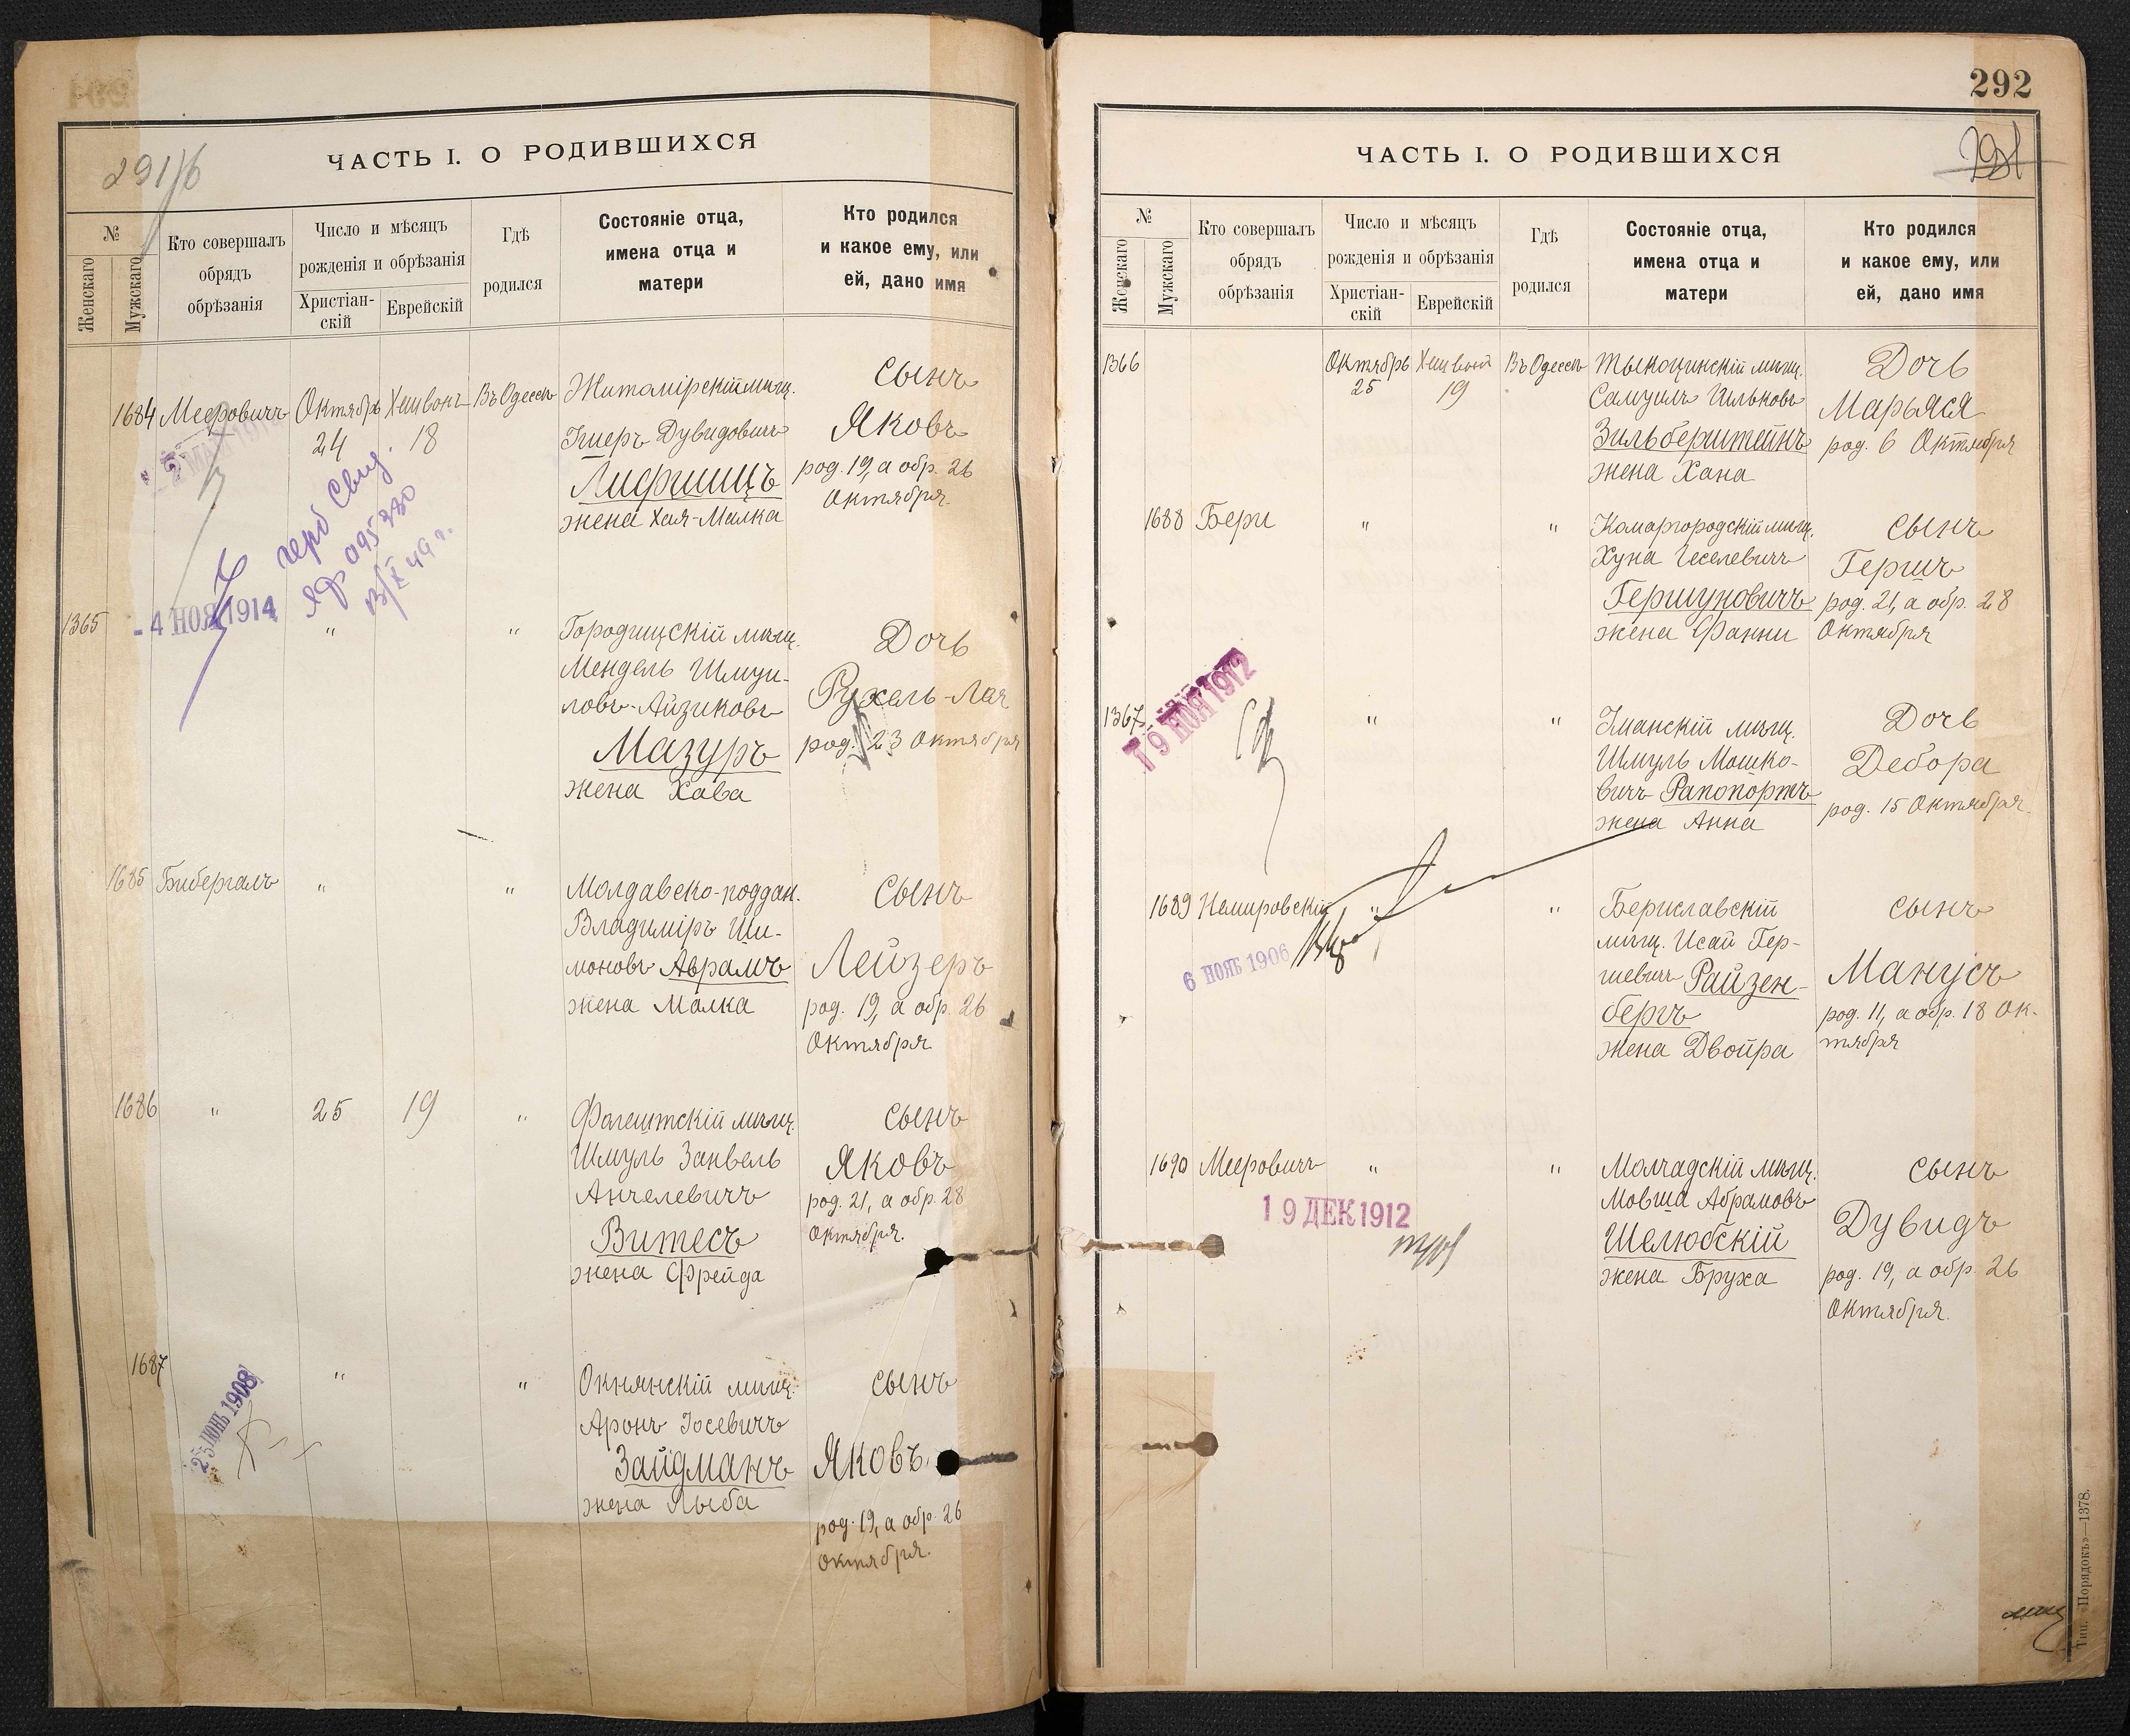 291/б
ЧАСТЬ I. О РОДИВШИХСЯ
№
Женскаго
Мужскаго
Кто совершалъ
обрядъ
обрѣзанія
Число и мѣсяцъ
рожденія и обрѣзанія
Христіан-
скій
Еврейскій
Гдѣ
родился
Состояніе отца,
имена отца и
матери
Кто родился
и какое ему, или
ей, дано имя
1684 Мееровичъ Октябрь 24 Хешвонъ 18 Въ Одессѣ
Житомірскій мѣщ.
Дувидовичъ
Лифшицъ
жена Хая-Малка
сынъ
Яковъ
род. 19, а обр. 26
Октября
герб Свид.
095380
13/X 49 г.
- 4 НОЯ 1914
1365 " "
Городищскій мѣщ.
Мендель Шмуи-
ловъ-Айзиковъ
Мазуръ
жена Хава
Дочь
Рухель-Лая
род. 23 Октября
1685 Бибергалъ " "
Молдавско-поддан.
Владиміръ Ши-
моновъ Аврамъ
жена Малка
сынъ
Лейзеръ
род. 19, а обр. 26
Октября
1686 " 25 19 "
Фалештскій мѣщ.
Шмуль Занвель
Анчелевичъ
Витесъ
жена Фрейда
сынъ
Яковъ
род. 21, а обр. 28
Октября.
1687 " "
25 ІЮНЬ 1908
Окнянскій мѣщ.
Аронъ Іосевичъ
Зайдманъ
жена Лыба
сынъ
Яковъ
род. 19, а обр. 26
Октября.
292
291
ЧАСТЬ I. О РОДИВШИХСЯ
№
Женскаго
Мужскаго
Кто совершалъ
обрядъ
обрѣзанія
Число и мѣсяцъ
рожденія и обрѣзанія
Христіан-
скій
Еврейскій
Гдѣ
родился
Состояніе отца,
имена отца и
матери
Кто родился
и какое ему, или
ей, дано имя
1366 Октябрь 25 Хешвонъ 19 Въ Одессѣ
Тыкоцинскій мѣщ.
Самуилъ Ильковъ
Зильберштейнъ
жена Хана
Дочь
Марьяся
род. 6 Октября
1688 Бери " "
Комаргородскій мѣщ.
Хуна Іеселевичъ
Гершуновичъ
жена Фанни
сынъ
Гершъ
род. 21, а обр. 28
Октября
1367 " "
19 НОЯ 1912
Уманскій мѣщ.
Шмуль Мошко-
вичъ Рапопортъ
жена Анна
Дочь
Дебора
род. 15 Октября
1689 Немировскій " "
6 НОЯБ 1906
Бериславскій
мѣщ. Исай Гер-
шевичъ Райзен-
бергъ
жена Двойра
сынъ
Манусъ
род. 11, а обр. 18 Ок-
тября
1690 Мееровичъ " "
19 ДЕК 1912
Молчадскій мѣщ.
Мовша Абрамовъ
Шелюбскій
жена Бруха
сынъ
Дувидъ
род. 19, а обр. 26
Октября.
Тип. «Порядокъ»—1378.